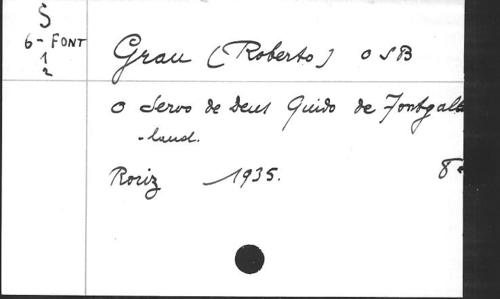 S
6-FONT
1
2
Grau (Roberto) OSB
O Servo de Deus Guido de Fontgal
-land.
Roriz - 1935. 8º